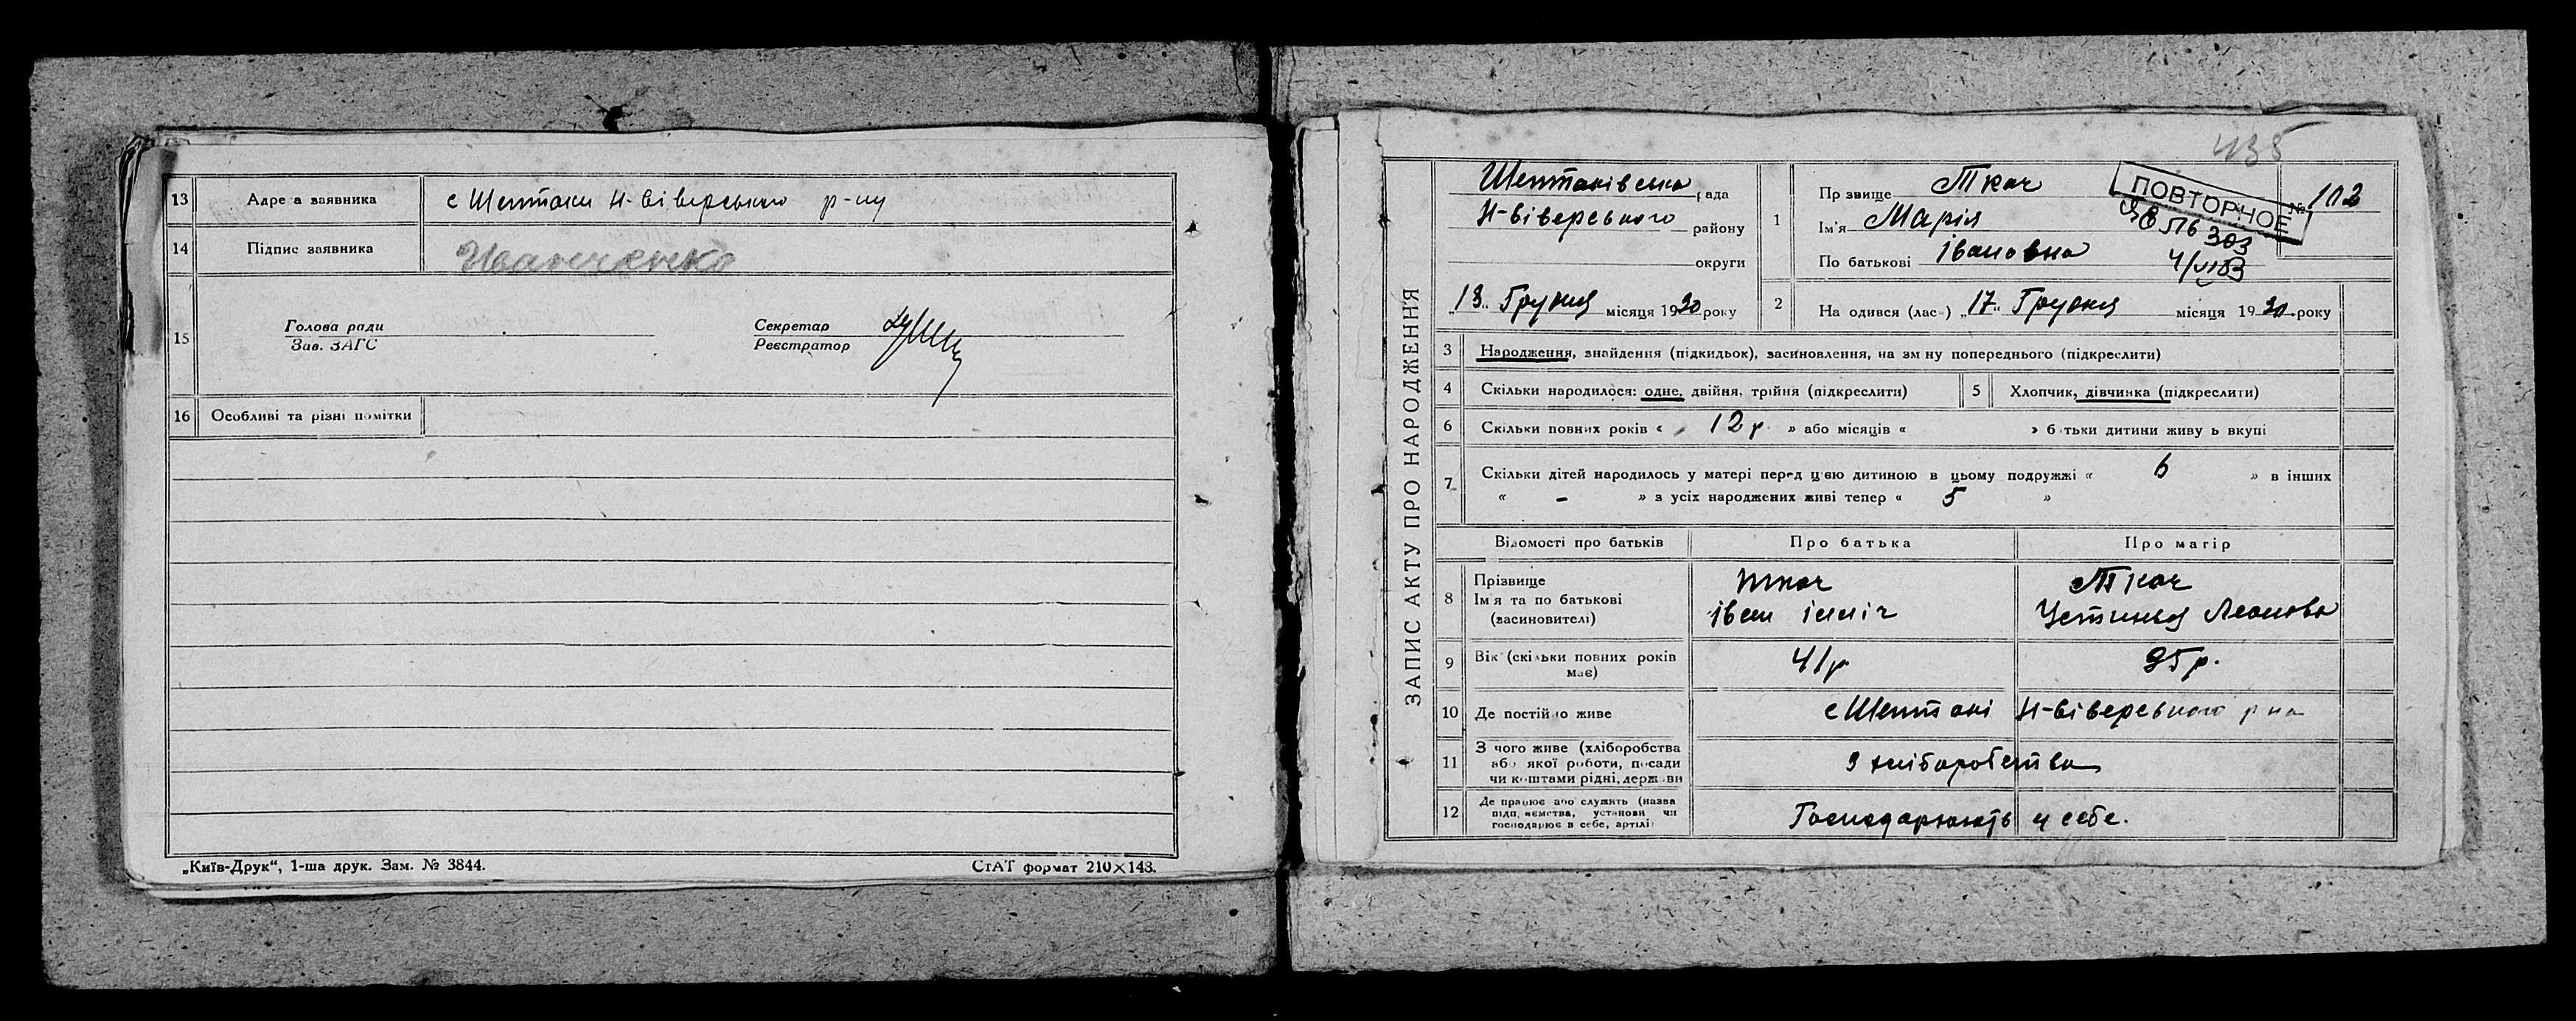 13 Адреса заявника с Шептаки Н-Сіверського р-ну
14 Підпис заявника Иванченко
15 Голова ради
Зав. ЗАГС
Секретар
Реєстратор
16 Особливі та різні помітки
„Київ-Друк“, 1-ша друк. Зам. № 3844.
СтАТ формат 210×148.
435
ЗАПИС АКТУ ПРО НАРОДЖЕННЯ
Шептаківська рада
Н-Сіверського району
округи
місяця 1930 року
1 Прізвище Ткач
Ім'я Марія
По батькові Івановна
ПОВТОРНОЕ
№ 102
303
2 На одився (лас ) „17“ Грудня місяця 1930 року
3 Народження, знайдення (підкидьок), засиновлення, на зм ну попереднього (підкреслити)
4 Скільки народилося: одне, двійня, трійня (підкреслити)
5 Хлопчик, дівчинка (підкреслити)
6 Скільки повних років « 12 р » або місяців « » б тьки дитини живу ь вкупі
7 Скільки дітей народилось у матері перед цією дитиною в цьому подружжі « 6 » в інших
« - » з усіх народжених живі тепер « 5 »
Відомості про батьків Про батька Про матір
8 Прізвище
Ім'я та по батькові
(засиновителі)
Ткач
Іван
Ткач
Устинья Леонова
9 Вік (скільки повних років
має)
41 р
35 р.
10 Де постійно живе с Шептакі Н-Сіверського р на
11 З чого живе (хліборобства
або якої роботи, посади
чи коштами рідні, держави
З хліборобства
12 Де працює або служить (назва
підп иємства, установи чи
господарює в себе, артілі)
Господарюють у себе.